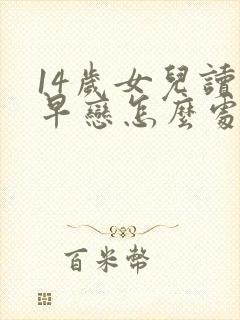 14歲女兒讀
早戀怎麼處
百米幣